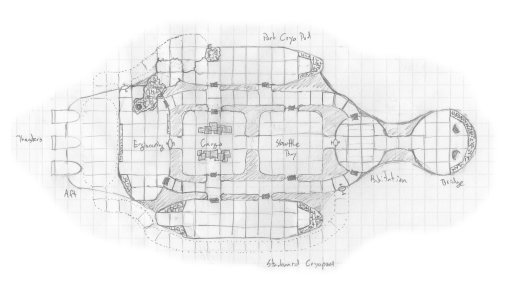 Port Cryo Pod
Thrusters
Engineering
Cargo
Shuttle
Bay
Aft
Habitation
Bridge
Starboard Cryopod